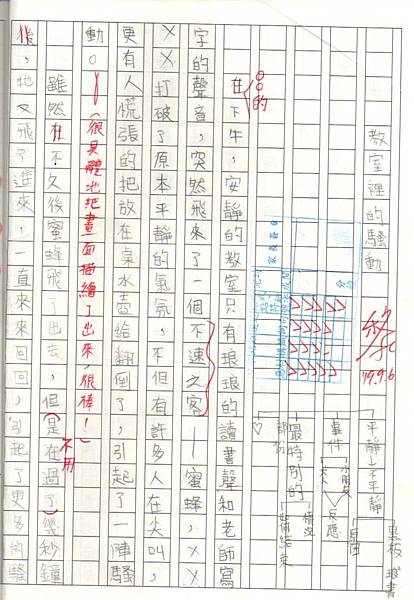 教室裡的騷動
'19.9.6
平靜→不平靜
事件
小朋友
大人
反應
原因
最特別的
部份
情況
如何結束
○○的
在下午，安靜的教室只有琅琅的讀書聲和老師寫
字的聲音，突然飛來了一個不速之客—蜜蜂，ㄨㄨ
ㄨㄨ打破了原本平靜的氣氛，不但有許多人在尖叫，
更有人慌張的把放在桌水壺給翻倒了，引起了一陣騷
動。
(很具體地把畫面描繪了出來，很棒！)
雖然在不久後蜜蜂飛了出去，但(是在過了)幾秒鐘
不用
後，牠又飛了進來，一直來來回回，引起了更多的騷